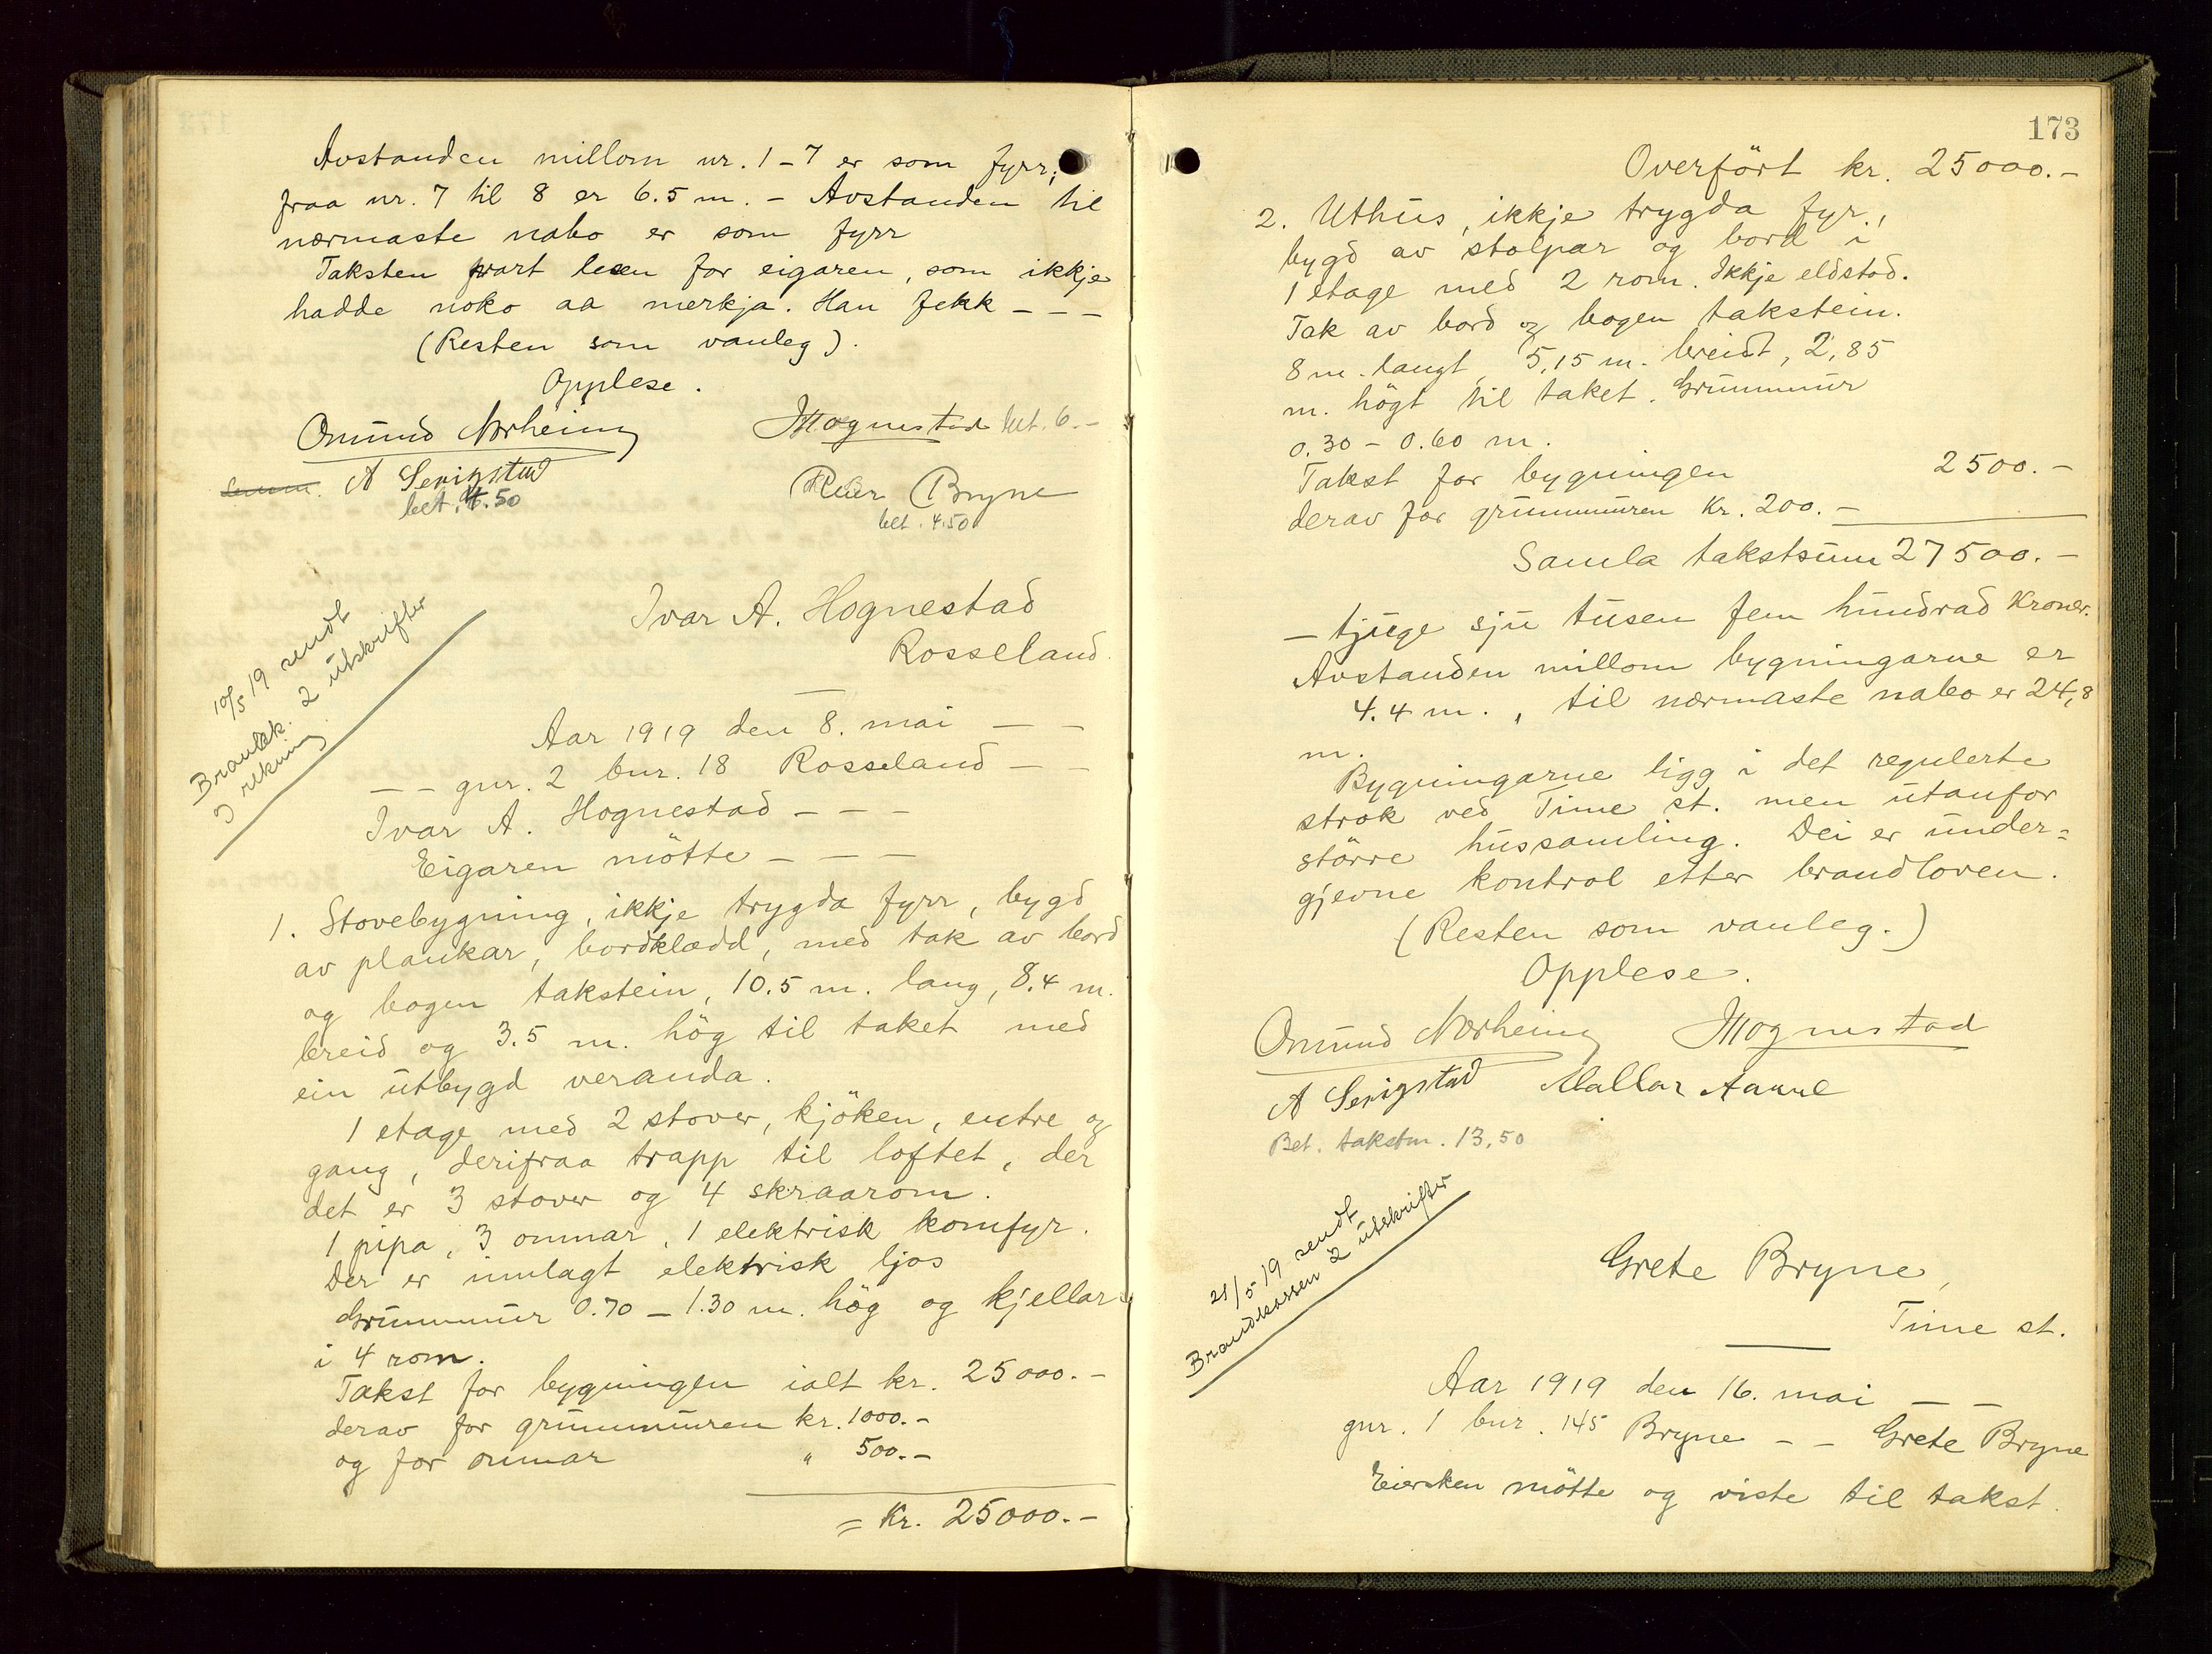 Avstanden millom nr. 1-7 er som fyrr;
fraa nr. 7 til 8 er 6.5 m. - Avstanden til
nærmaste nabo er som fyrr
Taksten vart lesen for eigaren, som ikkje
hadde noko aa merkja. Han fekk - - -
(Resten som vanleg).
Opplese.
Omund Norheim
Hognestad bet. 6.-
A Serigstad
bet. 4.50
Reier Bryne
bet. 4.50
10/5 19 sendt
Brandk. 2 utskrifter
I rekning
Ivar A. Hognestad
Rosseland.
Aar 1919 den 8. mai - -
- - gnr. 2 bnr. 18 Rosseland - -
Ivar A. Hognestad - - -
Eigaren mötte - - -
1. Stovebygning, ikkje trygda fyrr, bygd
av plankar, bordklædd, med tak av bord
og bogen takstein, 10.5 m. lang, 8.4 m.
breid og 3.5 m. hög til taket med
ein utbygd veranda.
1 etage med 2 stover, kjöken, entre og
gang, derifraa trapp til loftet, der
det er 3 stover og 4 skraarom.
1 pipa, 3 omnar, 1 elektrisk komfyr.
Der er innlagt elektrisk ljos
Grunnmur 0.70 - 1.30 m. hög og kjellar
i 4 rom.
Takst for bygningen ialt kr. 25000.-
derav for grunnmuren kr. 1000.-
og for omnar " 500.-
= Kr. 25000.-
173
Overfört kr. 25000.-
2. Uthus, ikkje trygda fyr.,
bygd av stolpar og bord i
1 etage med 2 rom. Ikkje eldstad.
Tak av bord og bogen takstein.
8 m. langt, 5,15 m. breidt, 2,85
m. högt til taket. Grunnmur
0.30 - 0.60 m.
Takst for bygningen 2500.-
derav for grunnmuren Kr. 200.-
Samla takstsum 27500.-
- tjuge sju tusen fem hundrad Kroner.
Avstanden millom bygningarne er
4.4 m., til nærmaste nabo er 24,8
m.
Bygningarne ligg i det regulerte
strok ved Time st. men utanfor
större hussamling. Dei er under=
gjevne kontrol etter brandloven.
(Resten som vanleg.)
Opplese.
Omund Norheim Hognestad
A Serigstad
Bet. takstm. 13,50
21/5 19 sendt
Brandkassen 2 utskrifter
Grete Bryne,
Time st.
Aar 1919 den 16. mai - -
gnr. 1 bnr. 145 Bryne - - Grete Bryne
Eiersken mötte og viste til takst.